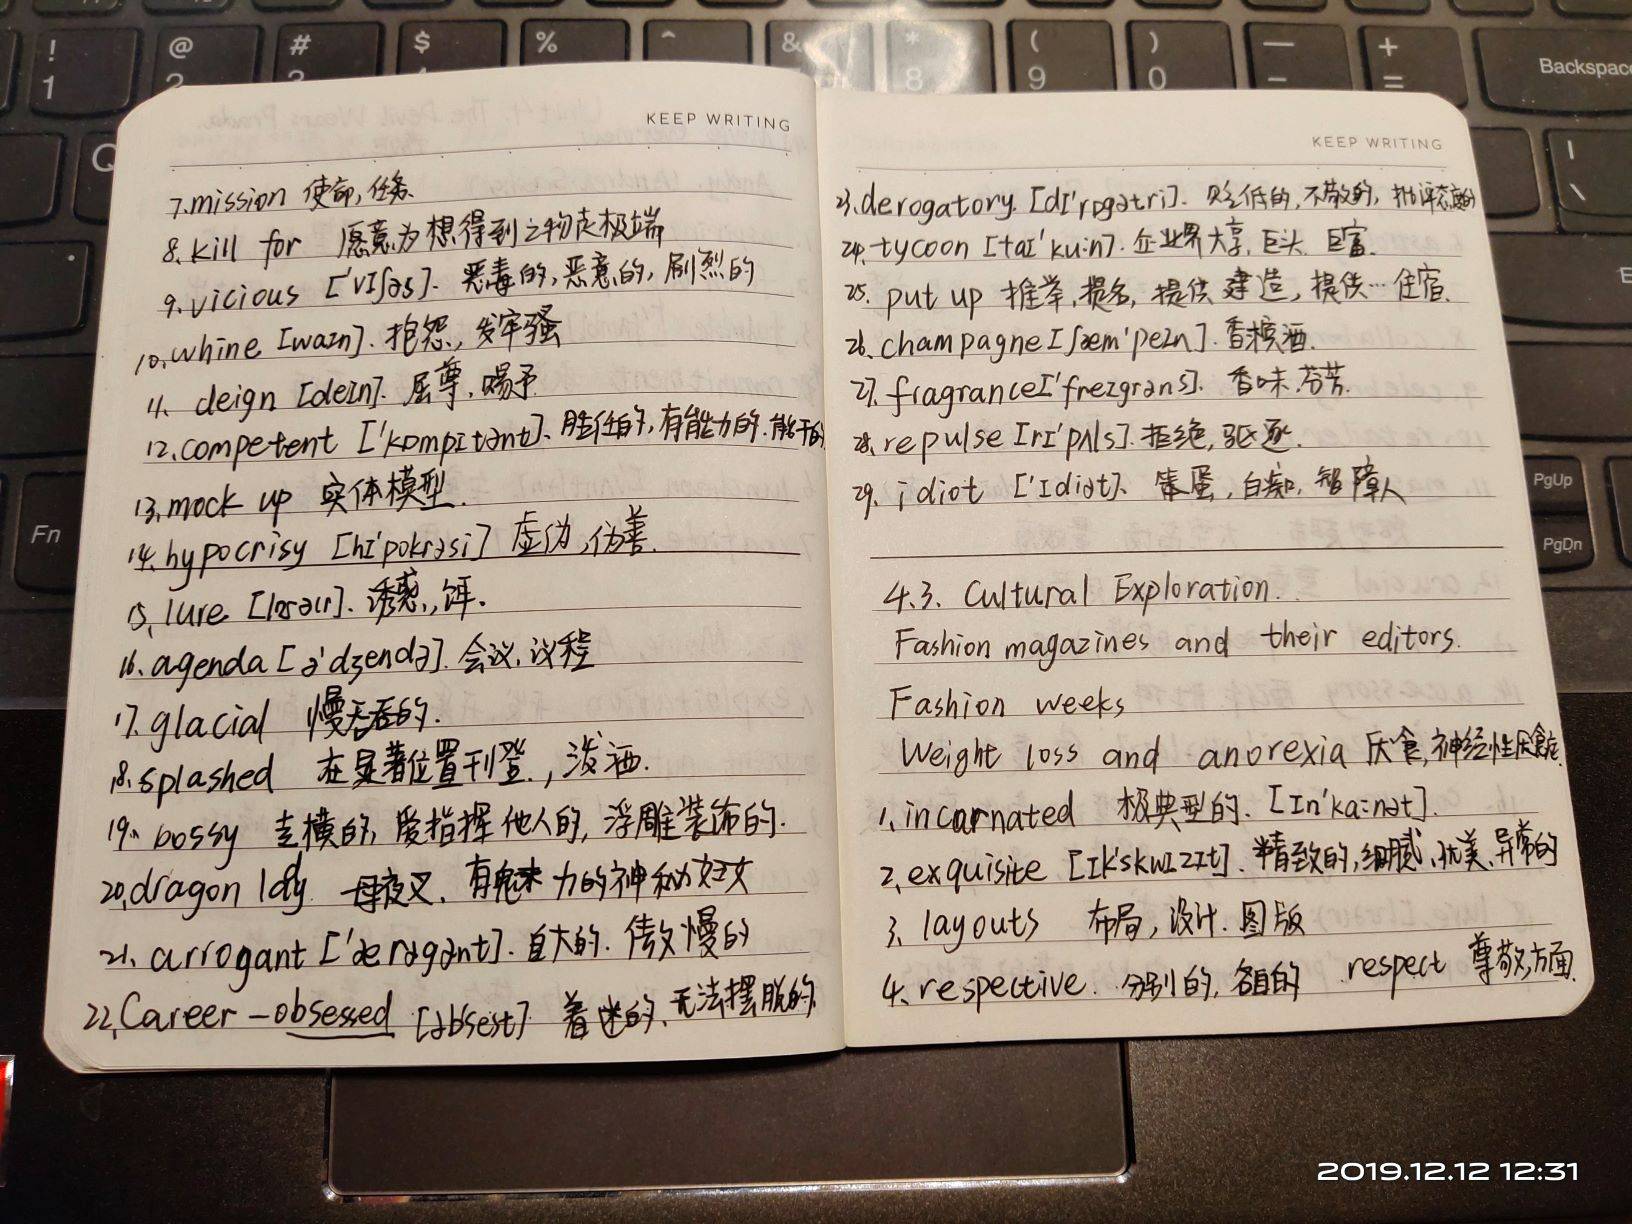 KEEP WRITING
7.mission 使命,任务.
8.kill for 愿意为想得到之物走极端
9.vicious ['vɪʃəs]. 恶毒的,恶意的,剧烈的
10.whine [waɪn]. 抱怨,发牢骚
11. deign [deɪn]. 屈尊,赐予
12.competent ['kɒmpɪtənt]. 胜任的,有能力的.能干的
13.mock up 实体模型.
14.hypocrisy [hɪ'pokrəsi] 虚伪,伪善.
15.lure 诱惑,饵.
16.agenda [ə'dʒendə]. 会议,议程
17.glacial 慢吞吞的.
18.splashed 在显著位置刊登.,泼洒.
19. bossy 专横的,爱指挥他人的,浮雕装饰的.
20.dragon lady 母夜叉. 有魅力的神秘妇女
21. arrogant ['ærəgənt]. 自大的.傲慢的
22.Career-obsessed [əbsest] 着迷的.无法摆脱的.
KEEP WRITING
23.derogatory. [dɪ'rɒgətri]. 贬低的,不敬的,批评态度的
24.tycoon [taɪ'kuːn]. 企业界大亨,巨头.巨富.
25. put up 推举,提名,提供 建造,提供…住宿.
26.champagne [ʃæm'peɪn]. 香槟酒.
27.fragrance['freɪgrəns]. 香味.芬芳.
28.repulse [rɪ'pʌls]. 拒绝,驱逐.
29. idiot ['ɪdiət]. 笨蛋,白痴,智障人
4.3. Cultural Exploration.
Fashion magazines and their editors.
Fashion weeks
Weight loss and anorexia 厌食,神经性厌食症.
1.incarnated 极典型的.[ɪn'kaːnət].
2.exquisite [ɪk'skwɪzɪt]. 精致的,细腻,优美,异常的
3. layouts 布局,设计.图版
4.respective. 分别的,各自的 .respect 尊敬,方面.
2019.12.12 12:31